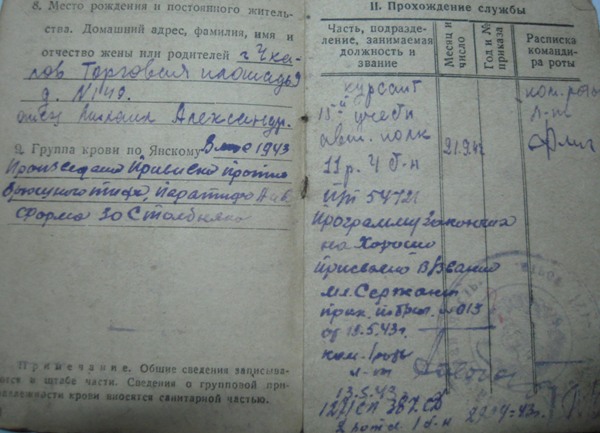 8. Место рождения и постоянного житель-
ства. Домашний адрес, фамилия, имя и
отчество жены или родителей г. Чка-
лов Торговая площадь
д. №
отец Михаил Александр.
9. Группа крови по Янскому 1943
Произведена Прививка против
брюшного тифа, паратифа А и В
Столбняка
Примечание. Общие сведения записыва-
ются в штабе части. Сведения о групповой при-
надлежности крови вносятся санитарной частью.
II. Прохождение службы
Часть, подразде-
ление, занимаемая
должность и
звание
Месяц и
число
Год и №
приказа
Расписка
команди-
ра роты
курсант
ком. роты
15й учебн
л-т
полк
21.9.42
11 р. 4 б-н
54721
Программу закончил
на Хорошо
Присвоено В/Звание
мл. Сержант
№013
от 13.5.43г.
ком. роты
л-т
13.5.43
1271 СП 387 СД
2 рота 1 б-н
43г.